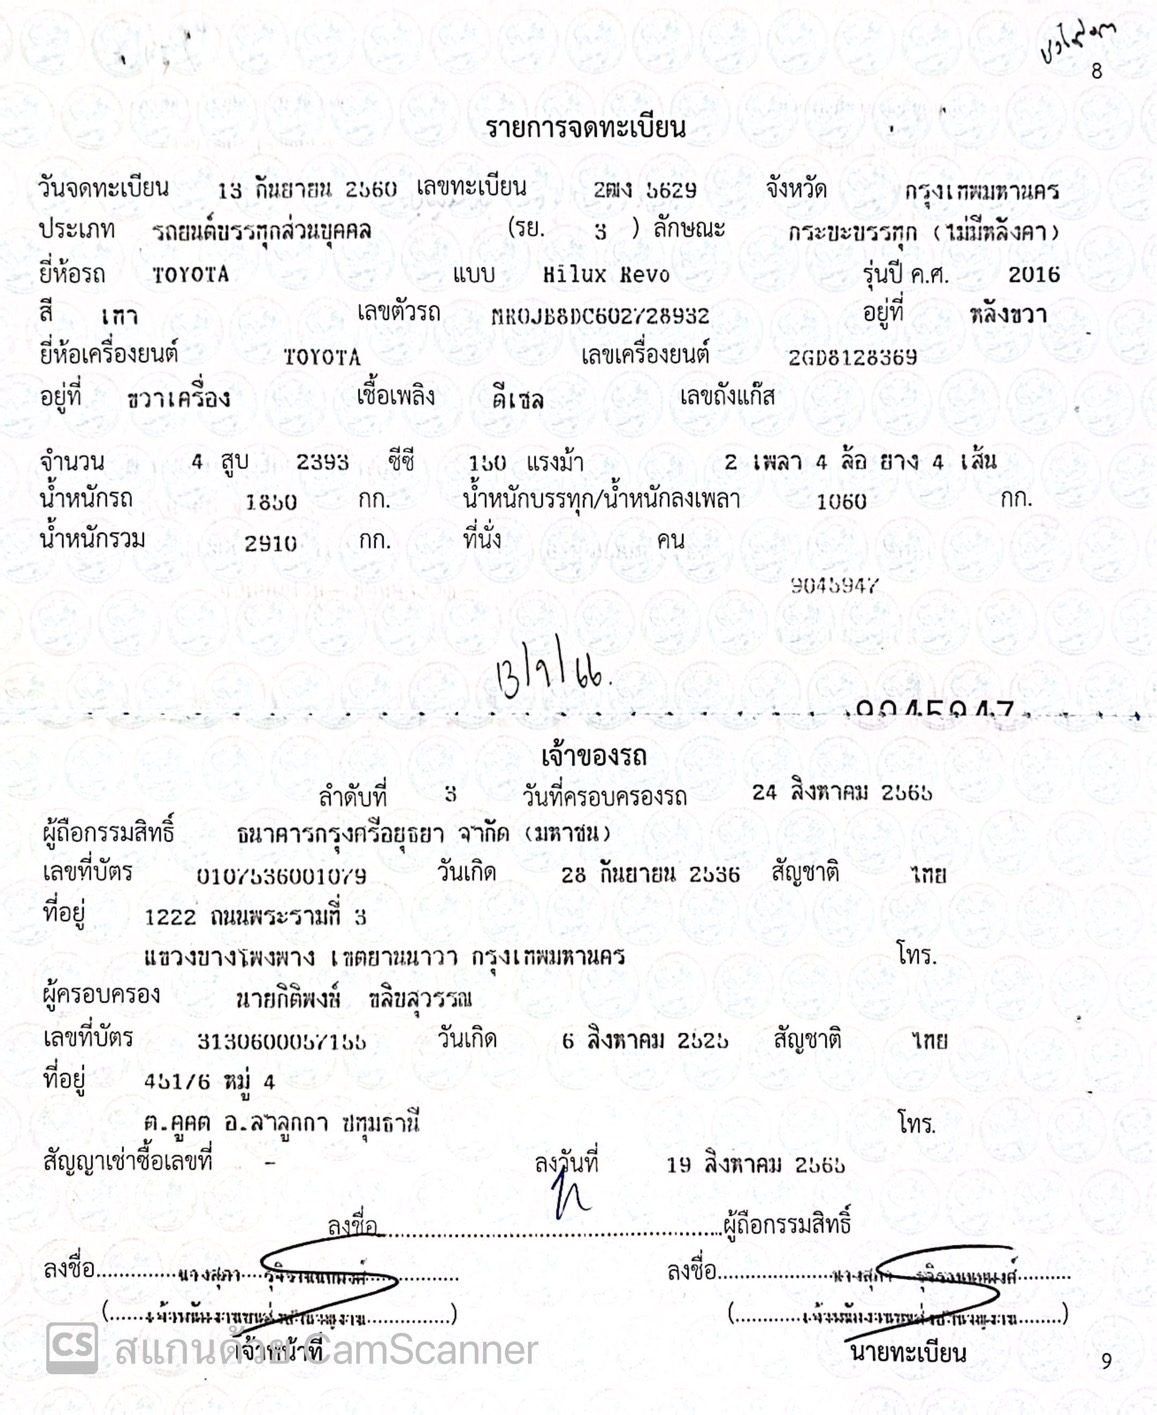 8
รายการจดทะเบียน
วันจดทะเบียน 13 กันยายน 2560 เลขทะเบียน 2ฒง 5629 จังหวัด กรุงเทพมหานคร
ประเภท รถยนต์บรรทุกส่วนบุคคล (รย. 3 ) ลักษณะ กระบะบรรทุก (ไม่มีหลังคา)
ยี่ห้อรถ TOYOTA แบบ Hilux Revo รุ่นปี ค.ศ. 2016
สี เทา เลขตัวรถ MR0JB8DC602728932 อยู่ที่ หลังขวา
ยี่ห้อเครื่องยนต์ TOYOTA เลขเครื่องยนต์ 2GD8128369
อยู่ที่ ขวาเครื่อง เชื้อเพลิง ดีเซล เลขถังแก๊ส
จำนวน 4 สูบ 2393 ซีซี 150 แรงม้า 2 เพลา 4 ล้อ ยาง 4 เส้น
น้ำหนักรถ 1850 กก. น้ำหนักบรรทุก/น้ำหนักลงเพลา 1060 กก.
น้ำหนักรวม 2910 กก. ที่นั่ง คน
9045947
13/9/66.
9045947
เจ้าของรถ
ลำดับที่ 3 วันที่ครอบครองรถ 24 สิงหาคม 2565
ผู้ถือกรรมสิทธิ์ ธนาคารกรุงศรีอยุธยา จำกัด (มหาชน)
เลขที่บัตร 0107536001079 วันเกิด 28 กันยายน 2536 สัญชาติ ไทย
ที่อยู่ 1222 ถนนพระรามที่ 3
แขวงบางโพงพาง เขตยานนาวา กรุงเทพมหานคร โทร.
ผู้ครอบครอง นายกิติพงษ์ ขลิบสุวรรณ
เลขที่บัตร 3130600057155 วันเกิด 6 สิงหาคม 2525 สัญชาติ ไทย
ที่อยู่ 451/6 หมู่ 4
ต.คูคต อ.ลำลูกกา ปทุมธานี โทร.
สัญญาเช่าซื้อเลขที่ - ลงวันที่ 19 สิงหาคม 2565
ลงชื่อ ผู้ถือกรรมสิทธิ์
ลงชื่อ นางสุภา ลงชื่อ นางสุภา
เจ้าหน้าที่ นายทะเบียน
CS สแกนด้วย CamScanner
9